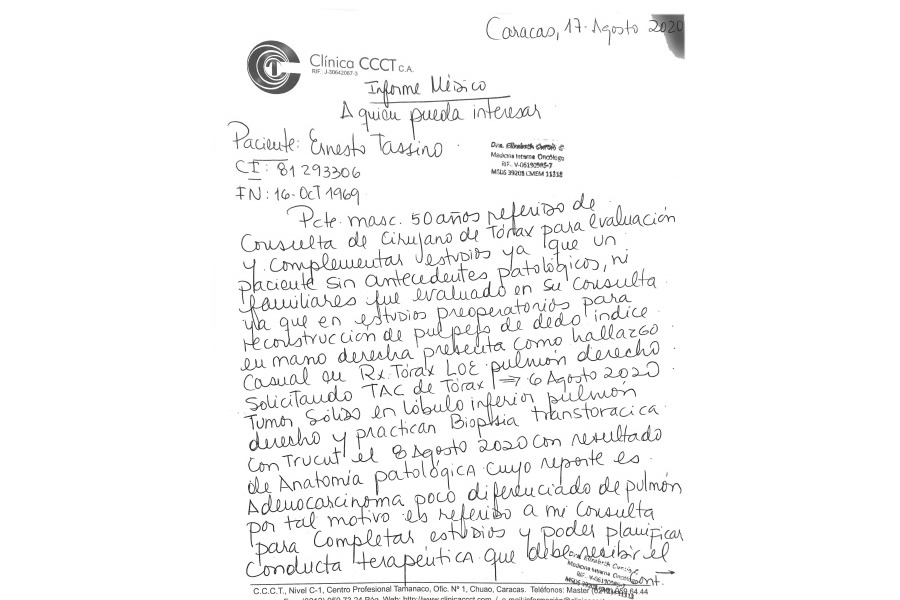 Caracas, 17. Agosto 2020
Clínica CCCT C.A.
RIF.: J-30642067-3
Informe Médico
A quien pueda interesar
Paciente: Ernesto Tassino.
Dra. Elizabeth
Medicina Interna Oncólogo
RIF. V-06190585-7
MSDS 39208 CMEM 11318
CI: 81293306
FN: 16-Oct 1969
Pcte. masc. 50 años referido de
Consulta de Cirujano de Tórax para evaluación
y complementar estudios ya que un
paciente sin antecedentes patológicos, ni
familiares fue evaluado en su consulta
ya que en estudios preoperatorios para
reconstrucción de pulpejo de dedo índice
en mano derecha presenta como hallazgo
Casual en Rx. Tórax LOE pulmón derecho.
Solicitando TAC de Tórax → 6 Agosto 2020
Tumor Sólido en lóbulo inferior pulmón
derecho y practican Biopsia transtoracica
con Trucut el 8 Agosto 2020 con resultado
de Anatomía patológica cuyo reporte es
Adenocarcinoma poco diferenciado de pulmón
por tal motivo es referido a mi Consulta
para Completar estudios y poder planificar
Conducta terapéutica que debe recibir el
Dra. Elizabeth
Medicina Interna
MSDS 39208
cont. →
C.C.C.T., Nivel C-1, Centro Profesional Tamanaco, Ofic. Nº 1, Chuao, Caracas. Teléfonos: Master